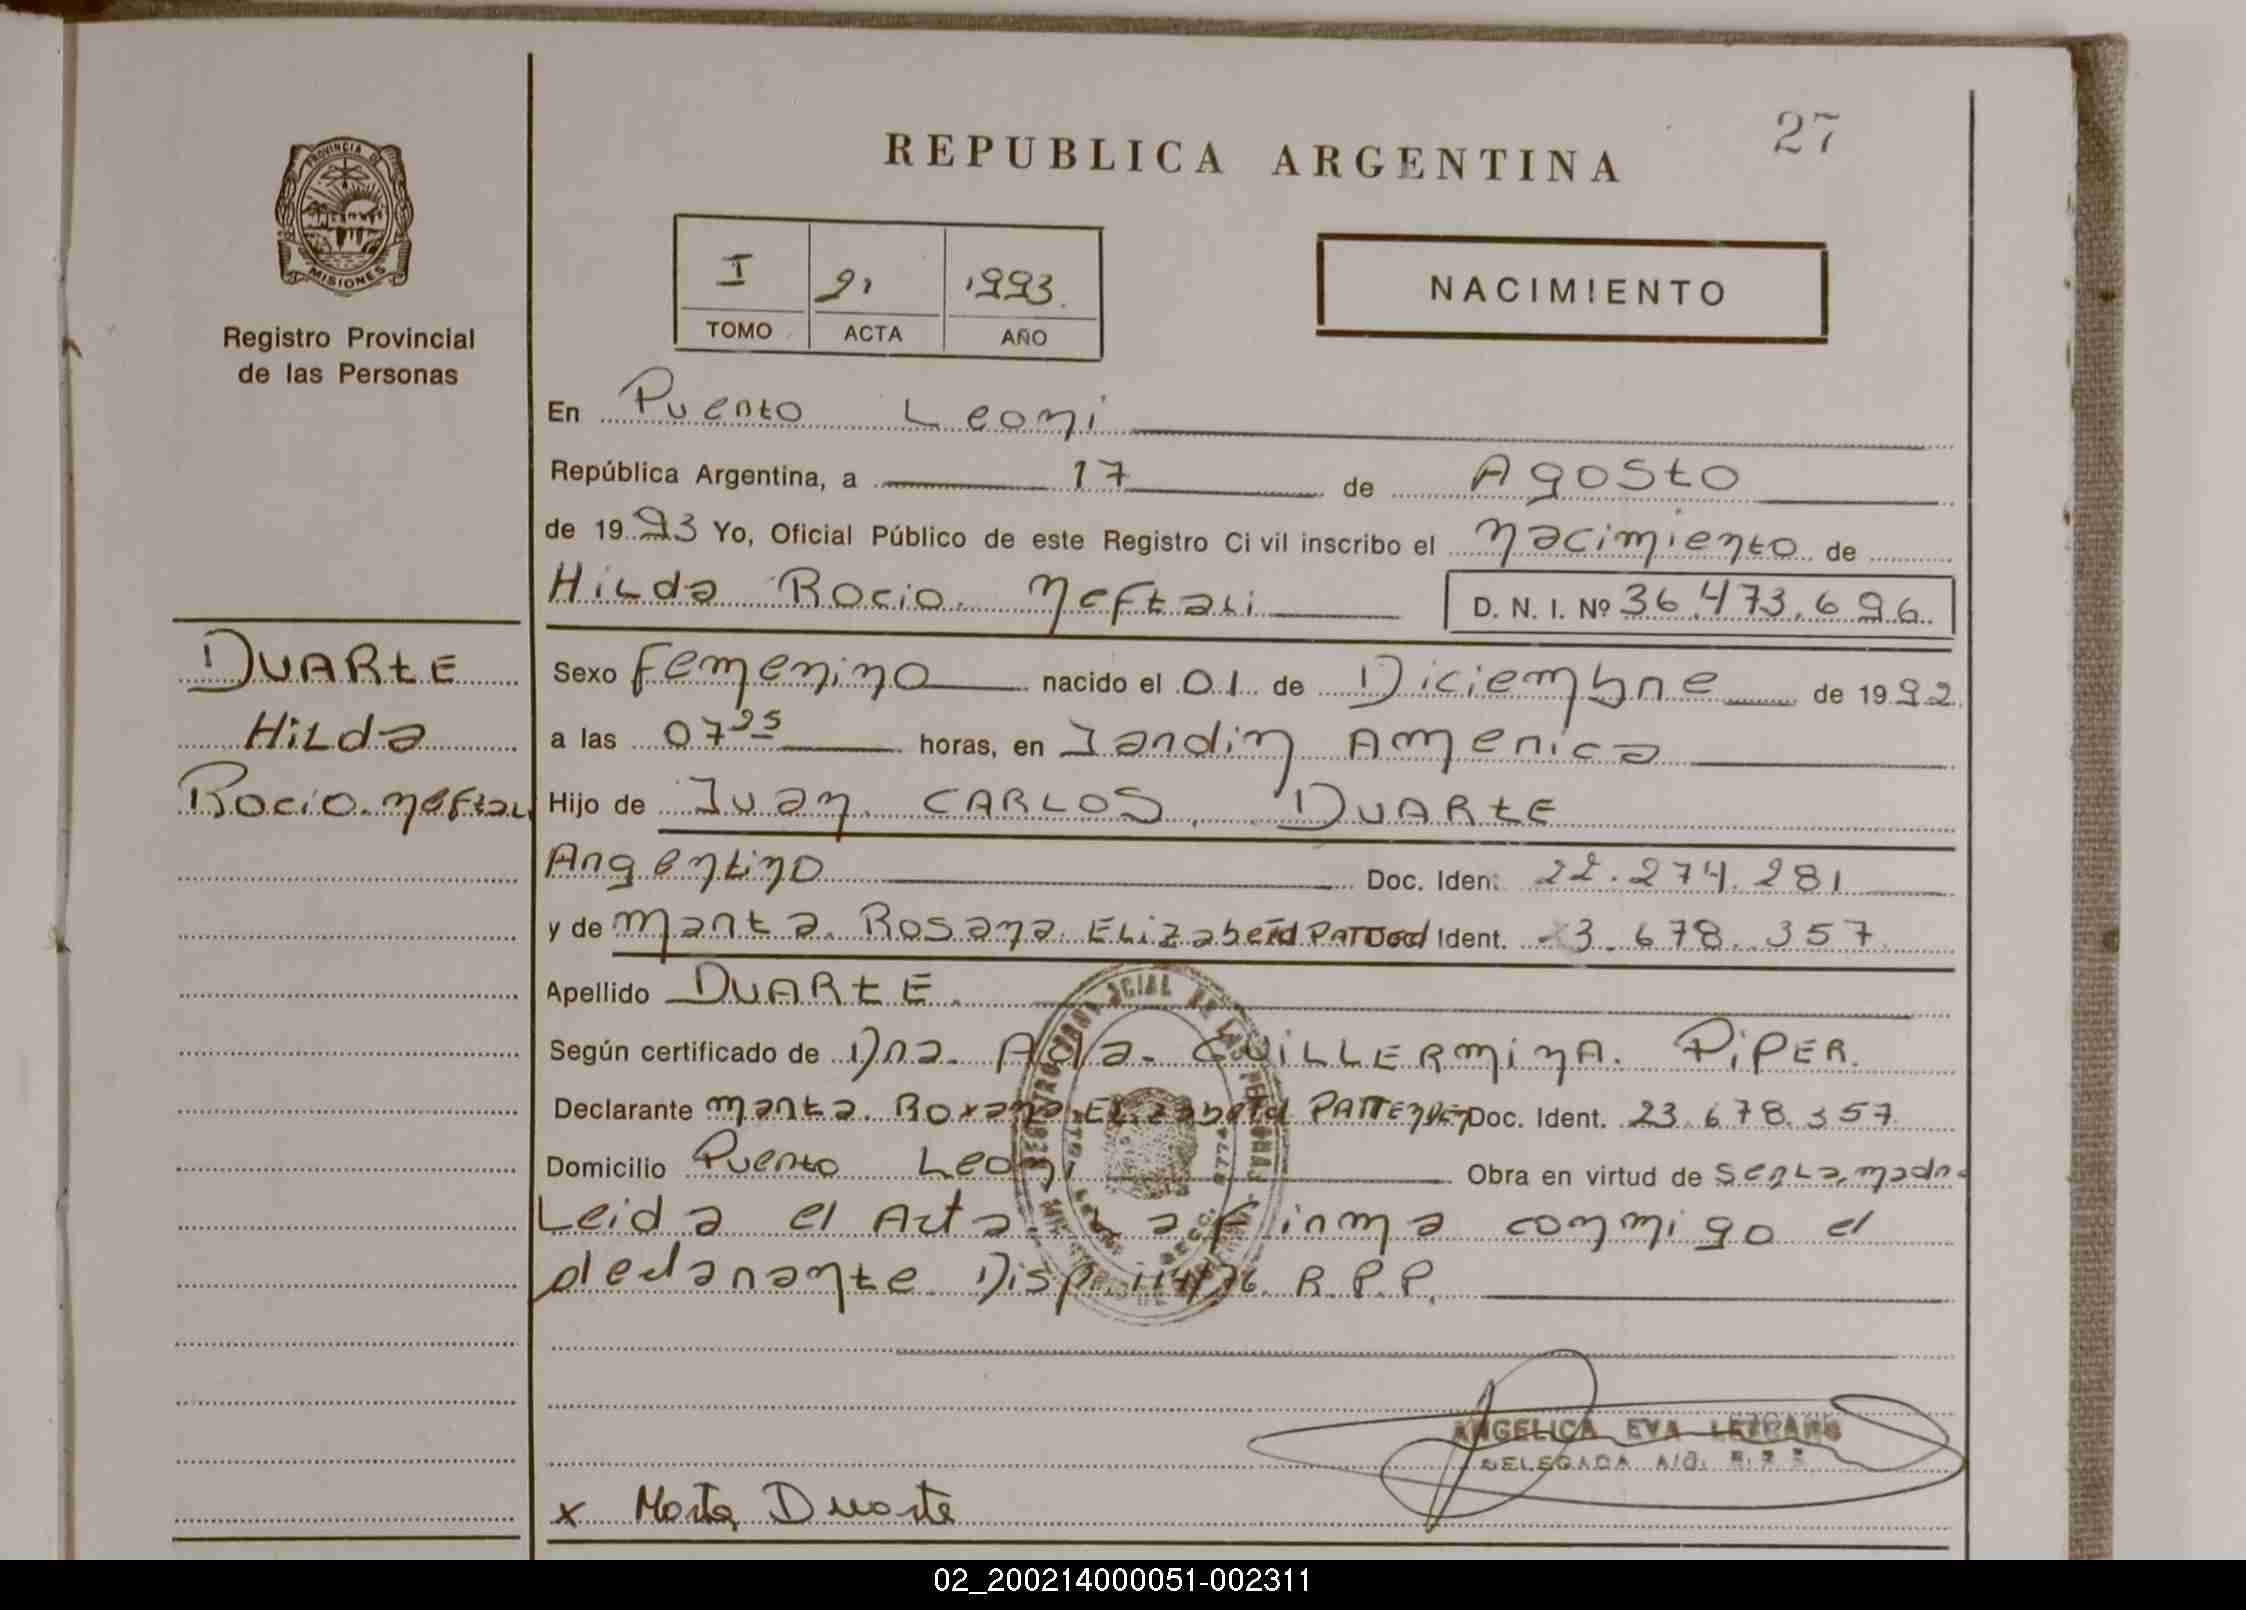 27
REPUBLICA ARGENTINA
PROVINCIA DE
MISIONES
Registro Provincial
de las Personas
I 1993.
TOMO ACTA AÑO
NACIMIENTO
En Puerto Leoni
República Argentina, a 17 de Agosto
de 1993 Yo, Oficial Público de este Registro Civil inscribo el nacimiento de
Hilda Rocio. Neftali D. N. I. Nº 36.473.696.
DUARtE
Hilda
Rocio. Neftali
Sexo femenino nacido el 01 de Diciembre de 1992.
a las 07 horas, en Jardin America
Hijo de Juan CARLOS DUARtE
Argentino Doc. Iden: 22.274.281
y de Marta. Rosana. ELizabetd Ident. 23.678.357
Apellido DUARtE.
Según certificado de Dra. Ada. GUiLLERminA. PiPER.
Declarante Marta. Roxana. ELizabetd Doc. Ident. 23.678.357
Domicilio Puerto Leoni Obra en virtud de Ser La madre
Leida el Acta La firma conmigo el
declarante. Disp. 114/76. R.P.P.
ANGELICA EVA LEZCANO
DELEGADA
x Marta Duarte
02_200214000051-002311